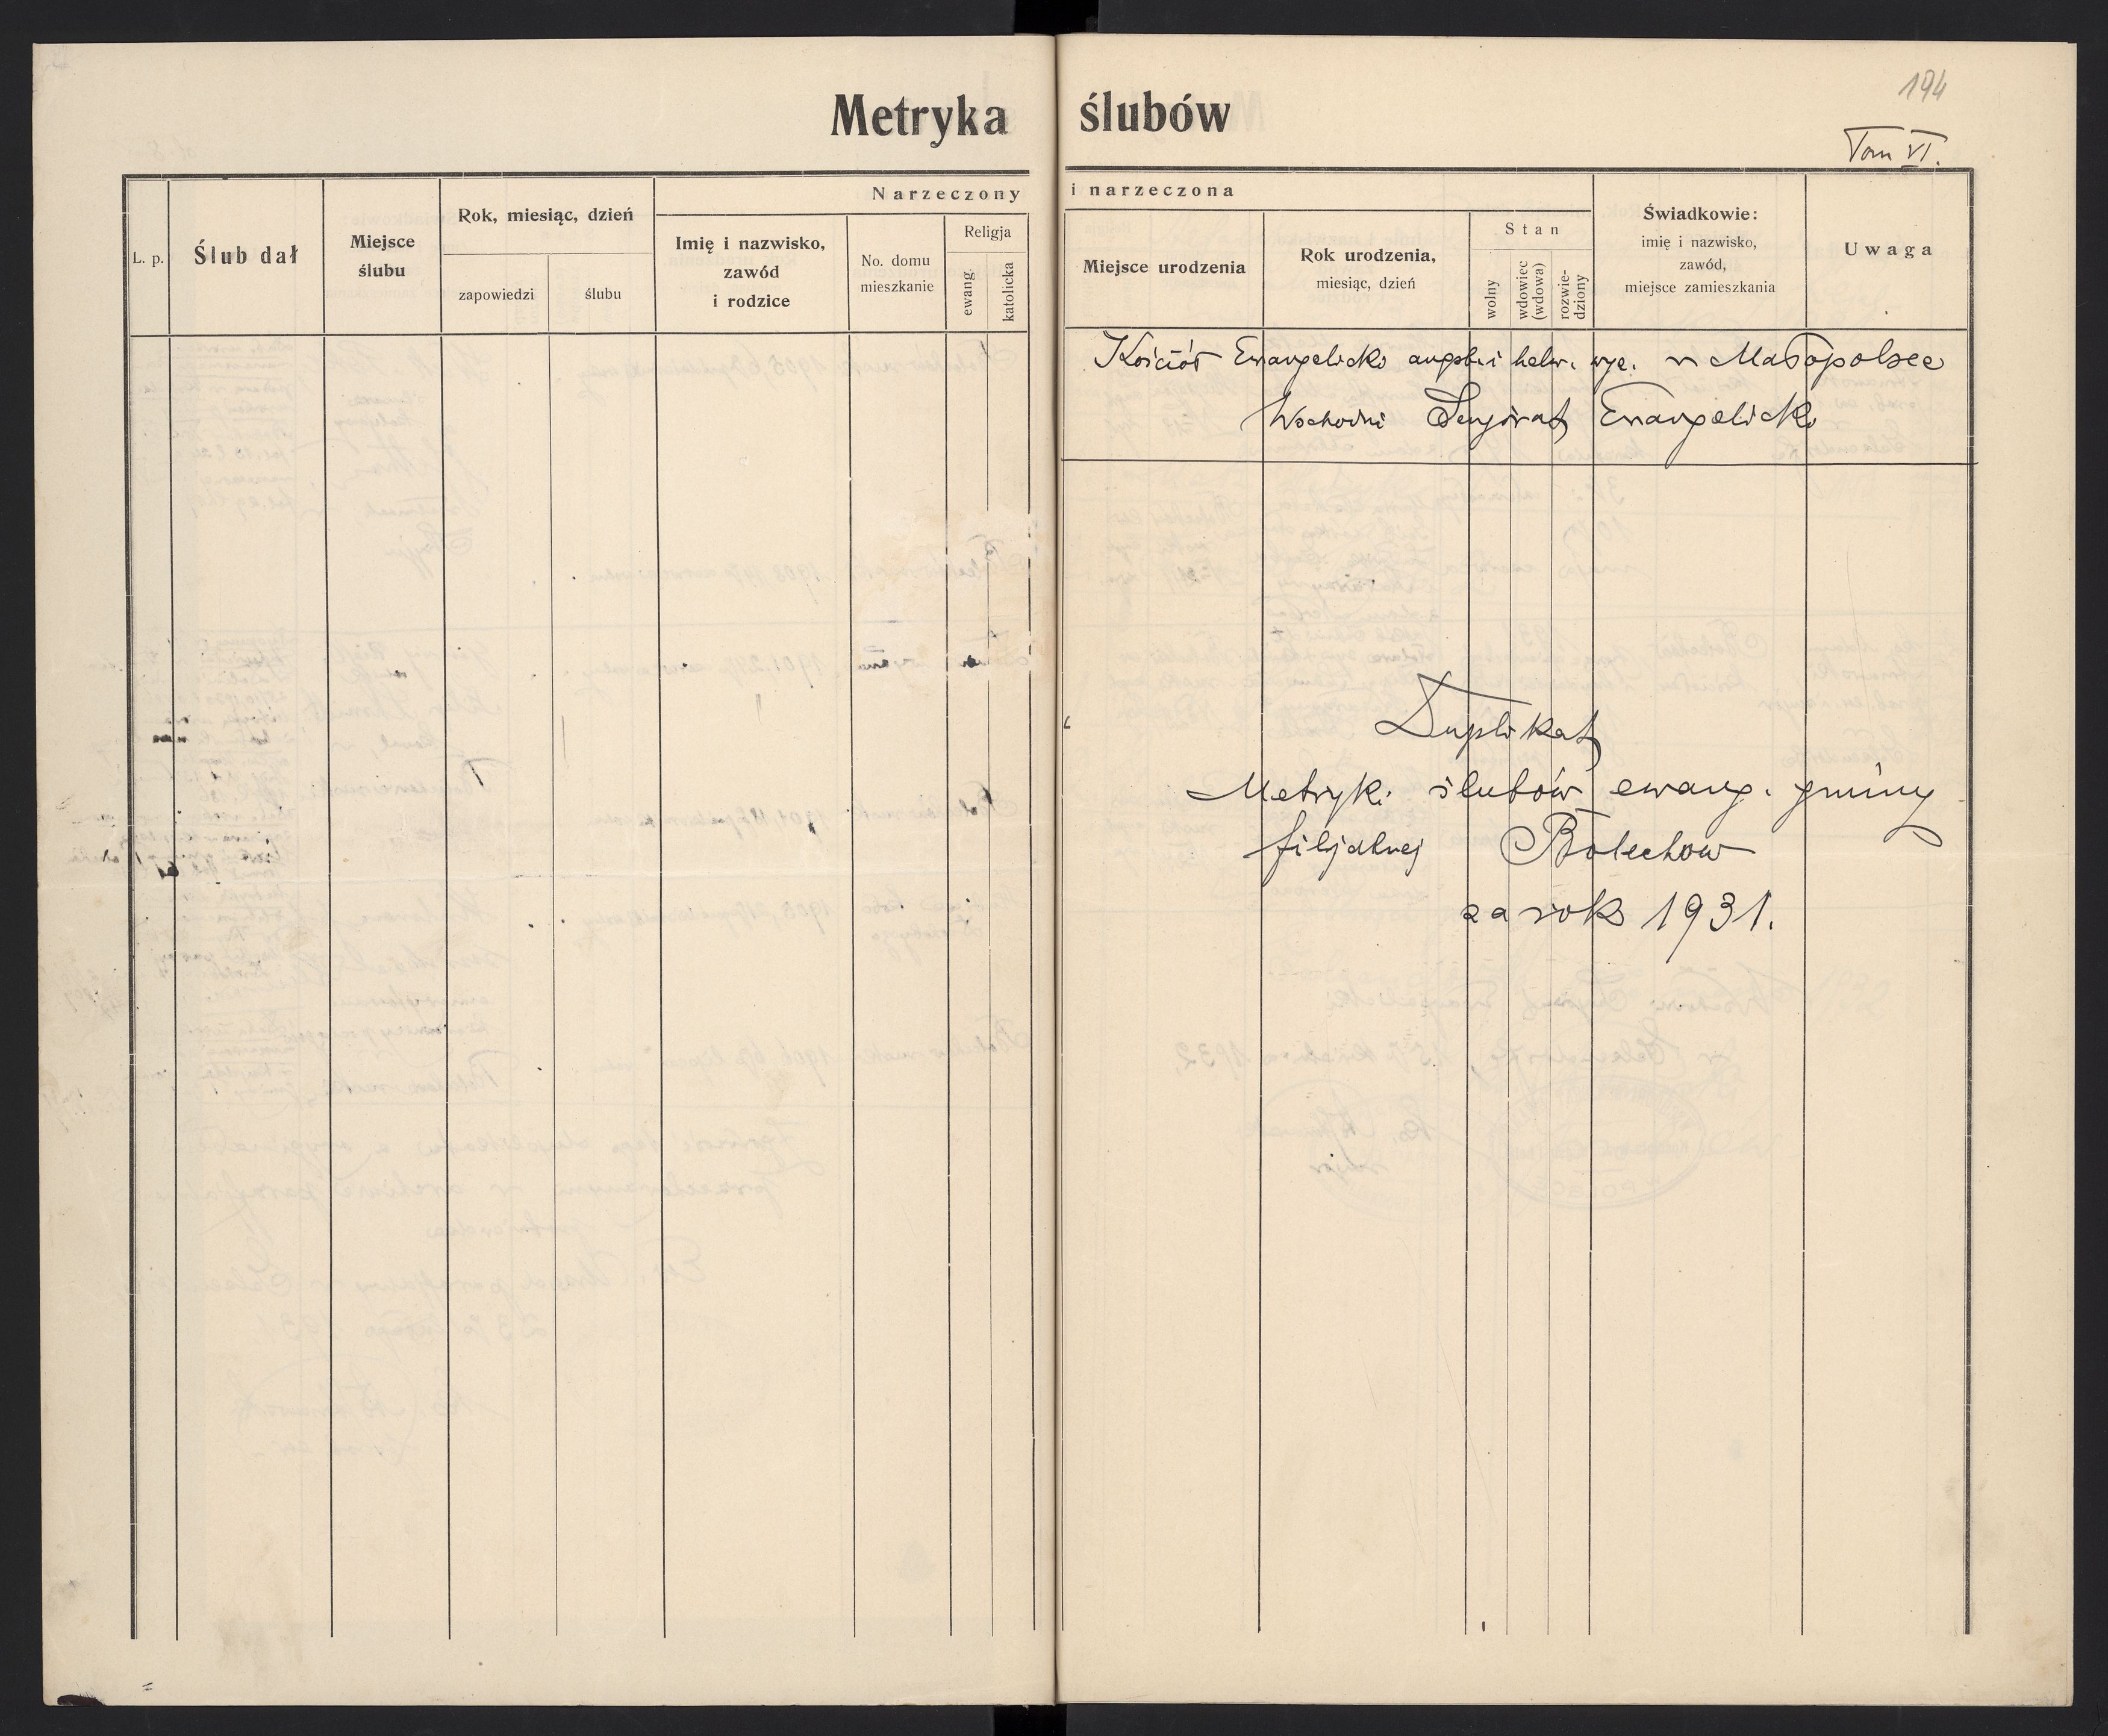 Metryka ślubów
194
Tom VI.
Narzeczony i narzeczona
L. p.
Ślub dał
Miejsce
ślubu
Rok, miesiąc, dzień
zapowiedzi
ślubu
Imię i nazwisko,
zawód
i rodzice
No. domu
mieszkanie
Religja
ewang.
katolicka
Miejsce urodzenia
Rok urodzenia,
miesiąc, dzień
Stan
wolny
wdowiec
(wdowa)
rozwie-
dziony
Świadkowie:
imię i nazwisko,
zawód,
miejsce zamieszkania
Uwaga
Kościół Ewangelicki augsb. i helw. wyz. w Małopolsce
Wschodni Senjorat Ewangelicki
Duplikat
Metryki ślubów ewang. gminy
filjalnej Bolechow
za rok 1931.